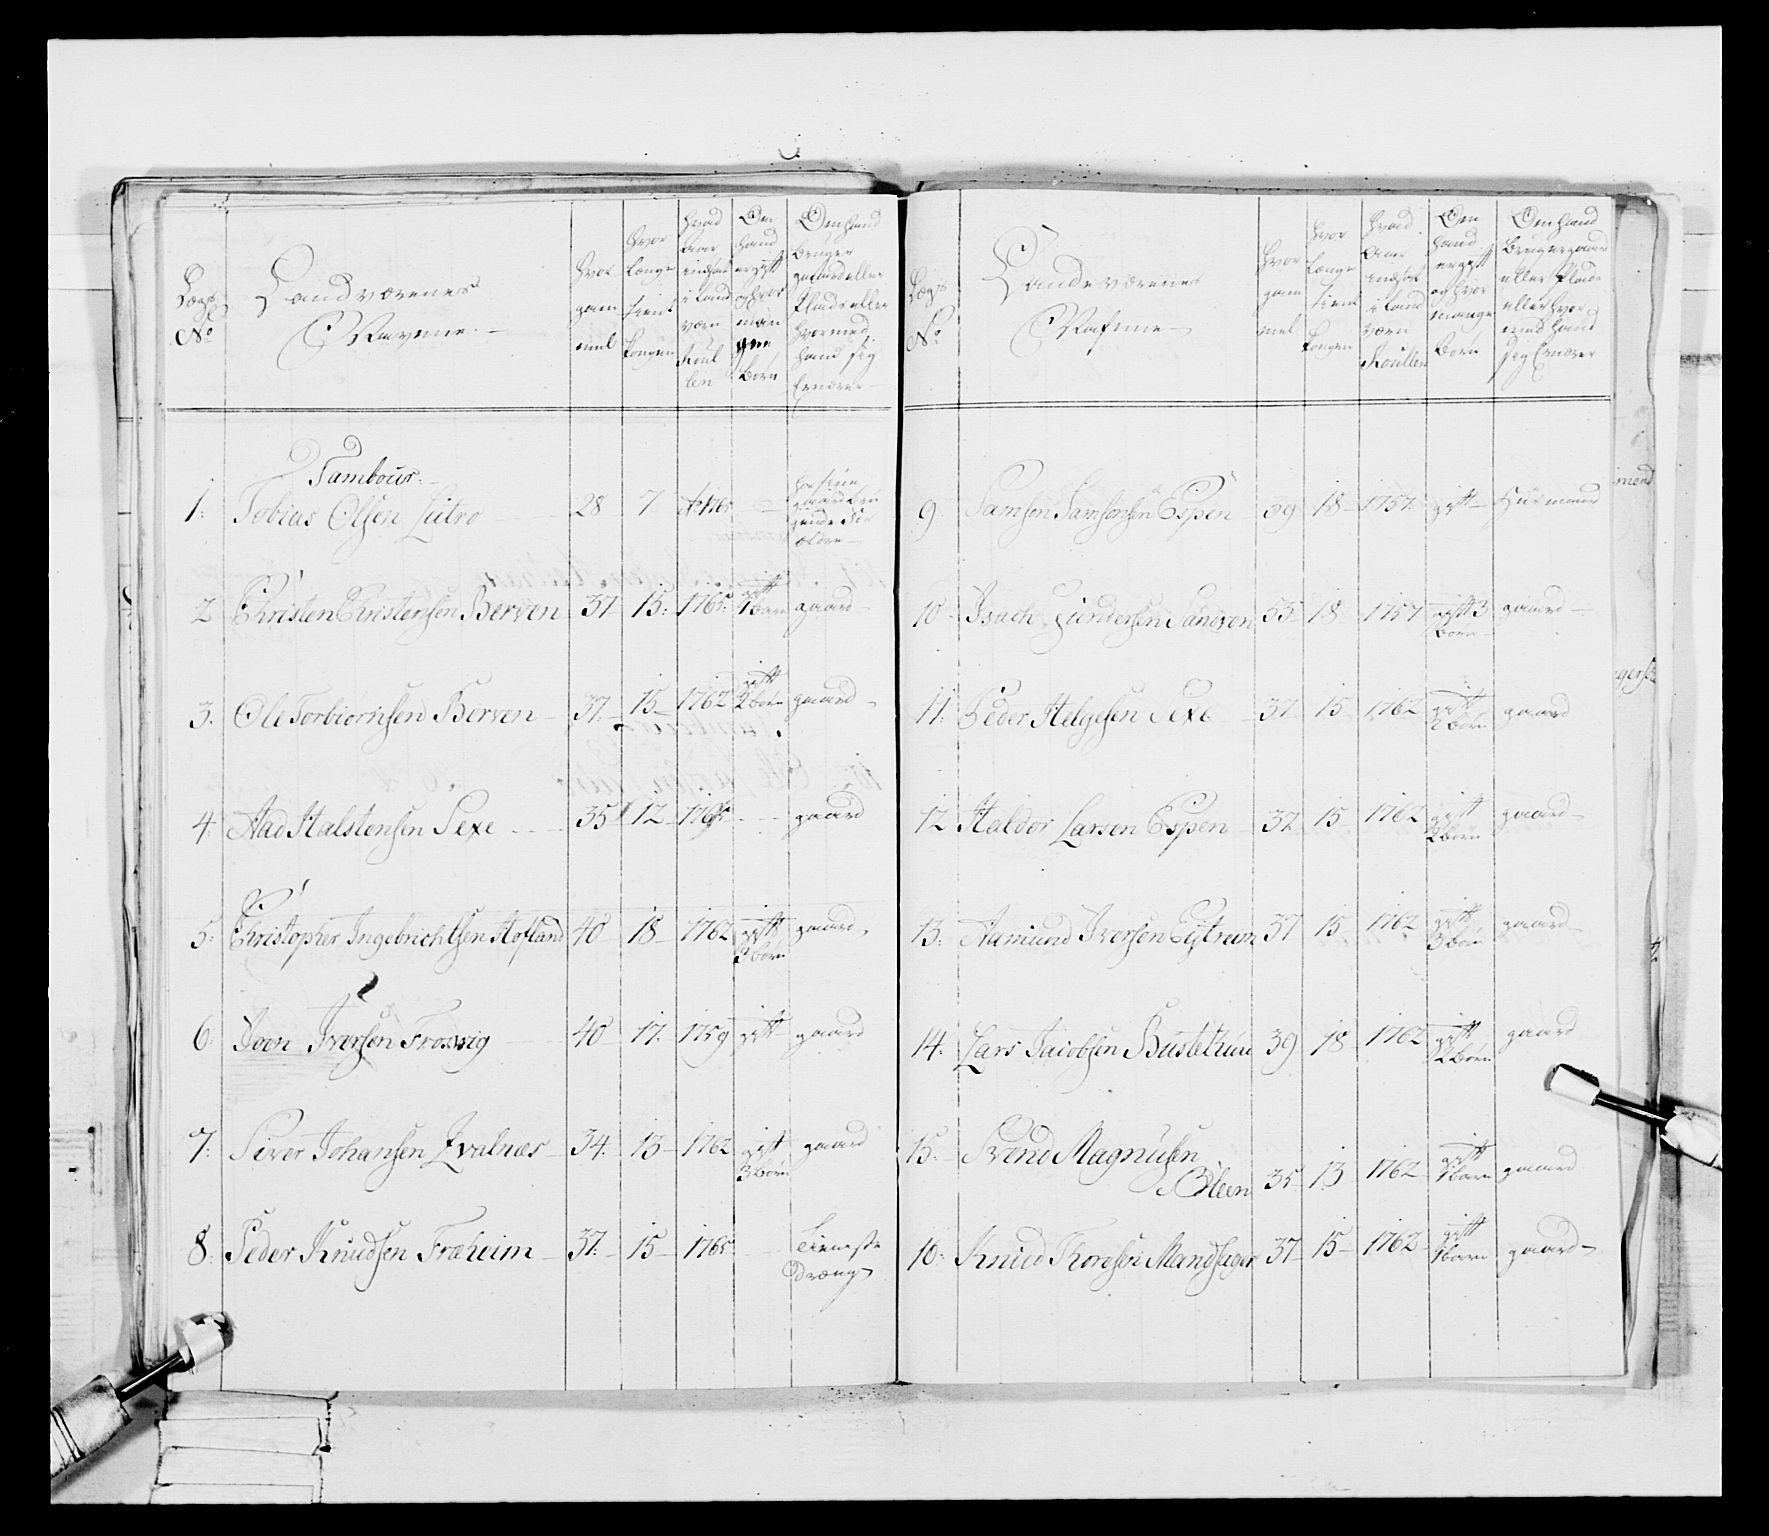 Lægs No
Landværenes Navne
Hvor gam mel
Hvor længe tient Kongen
Hvad Aar indsat i Land værn Roul len
Om hand er gift og hvor man gee Børn
Om hand bruger gaard eller Plads eller hvormed hand sig Ernærer
Tambour
1: Tobias Olsen Lutro 28 7
2 Christen Christensen Berven 37 15: 1765: gift 1 børn gaard
3. Ole Torbiørnsen Berven 37. 15 1762 gift 2 børn gaard
4: Aad Halstensen Sexe 35 12 1765 gaard
5: Christopher Ingebrichtsen Hofland 40 18 1762 gift 3 børn gaard
6: Joen Iversen Frosvig 40 17. 1759 gift gaard
7: Siver Johansen Qvalnæs 34: 13 1762 gift 3 børn gaard
8: Peder Knudsen Fræheim 37: 15 1765 Tieneste Dræng
Lægs No
Landeværenes Nafnne
Hvor gam mel
Hvor længe tient Kongen
Hvad Aar indsat i Land værn Roullen
Om hand er gift og hvor mange Børn
Om hand bruger gaard eller Plads eller hvor med hand sig Ernærer
9 Samson Samsonsen Espen 39 18 1757 gift Huusmand
10 Isach Gundersen 55 18 1757 gift 3 børn gaard
11: Peder Helgesen Sexe 37 15 1762 gift 2 børn gaard
12 Haldor Larsen Espen 37 15 1762 gift 2 børn gaard
13: Aamund Iversen 37 15 1762 gift 3 børn gaard
14: Lars Jacobsen Bustetun 39 18 1762 gift 2 børn gaard
15: Svend Magnusen
Bleen 35 13 1762 gift 1 barn gaard
16: Knud Toresen Mandsager 37 15 1762 gift 1 barn gaard